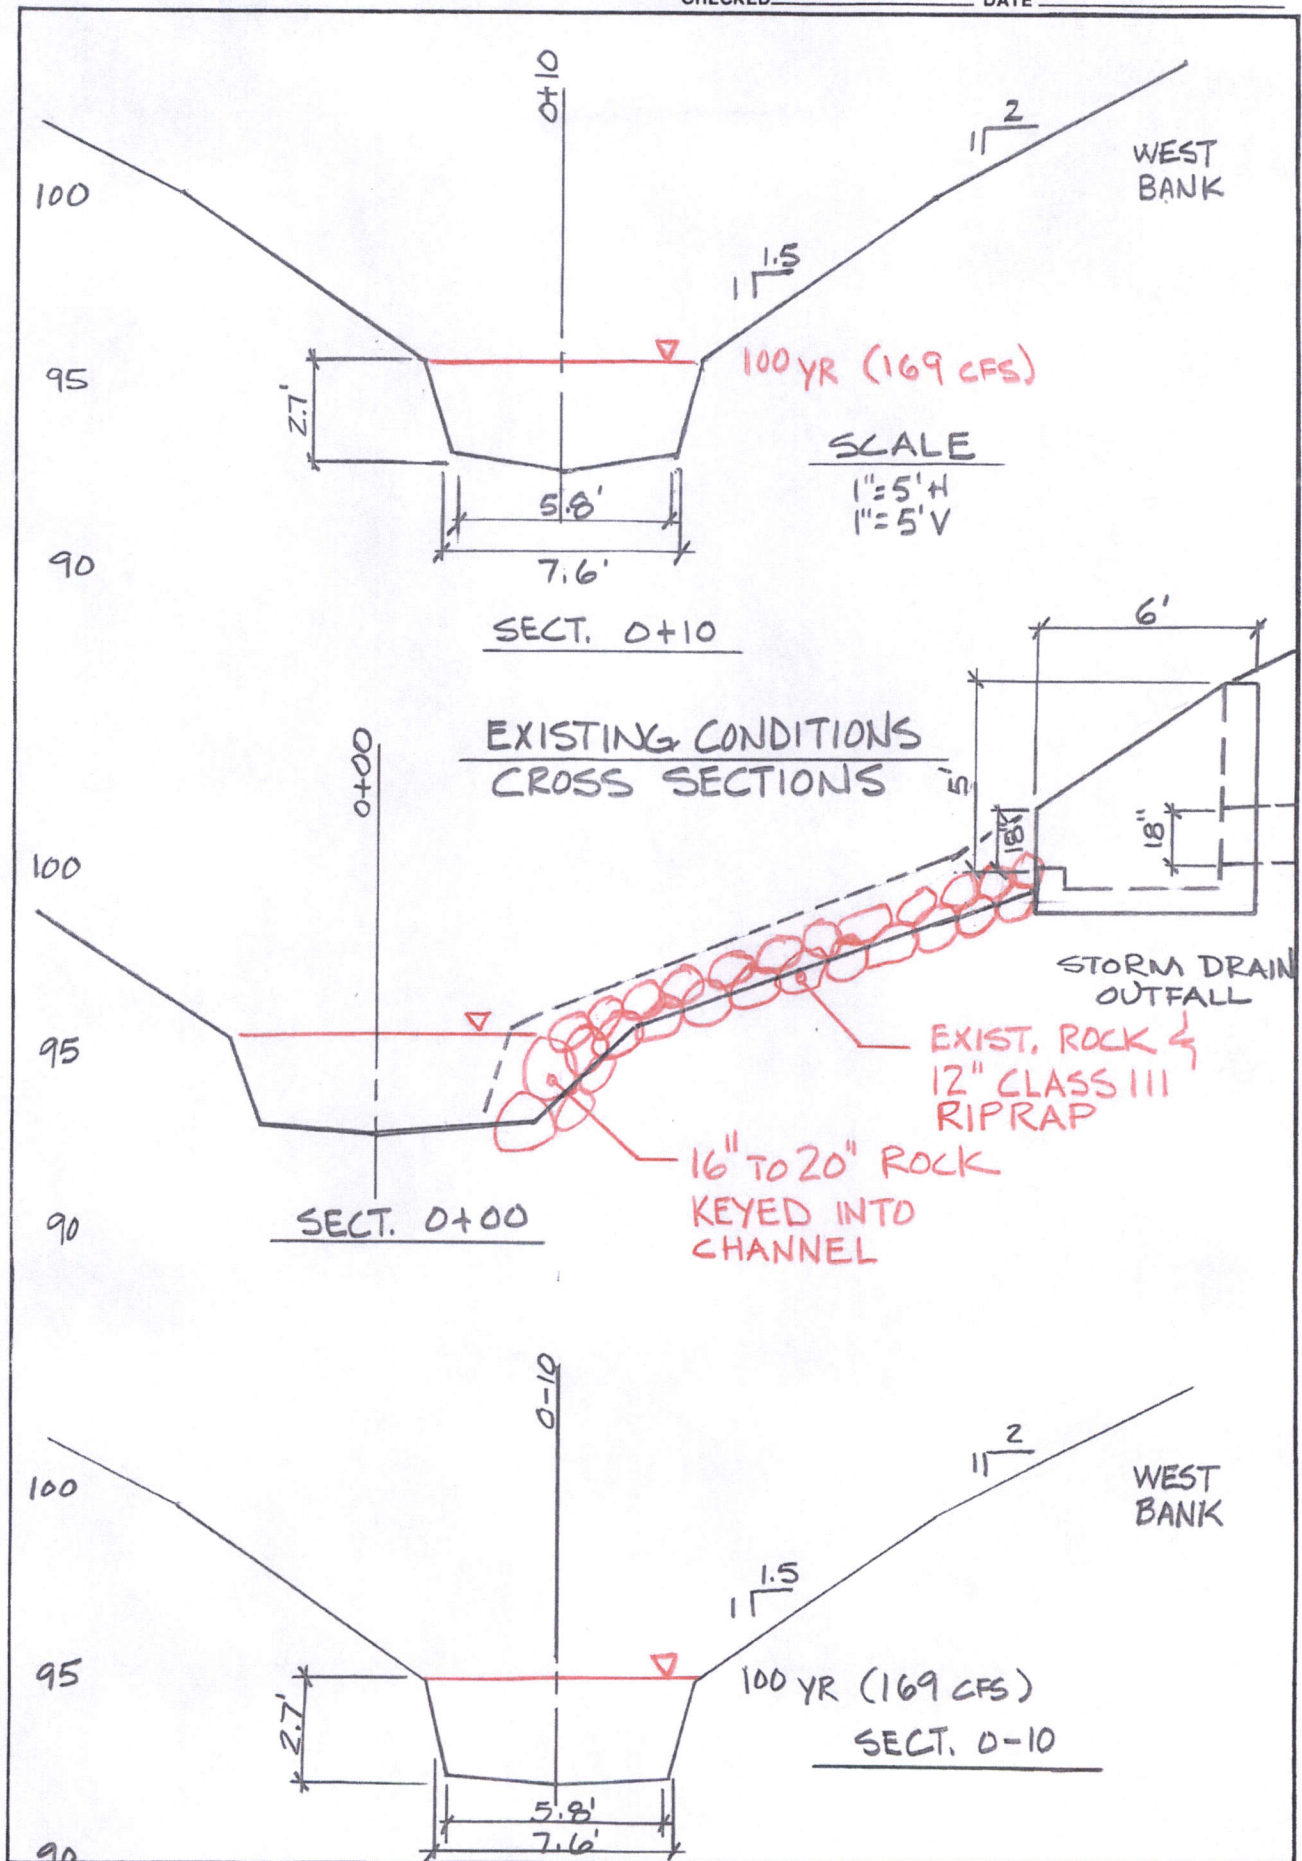 CHECKED DATE
0+10
1 2
WEST
BANK
100
1 1.5
100 YR (169 CFS)
95
2.7'
SCALE
1"=5'H
1"=5'V
5.8'
7.6'
90
SECT. 0+10
6'
EXISTING CONDITIONS
CROSS SECTIONS
0+00
5'
18"
18"
100
STORM DRAIN
OUTFALL
95
EXIST. ROCK &
12" CLASS III
RIPRAP
16" TO 20" ROCK
KEYED INTO
CHANNEL
90
SECT. 0+00
0-10
1 2
WEST
BANK
100
1 1.5
95
100 YR (169 CFS)
2.7'
SECT. 0-10
5.8'
7.6'
90